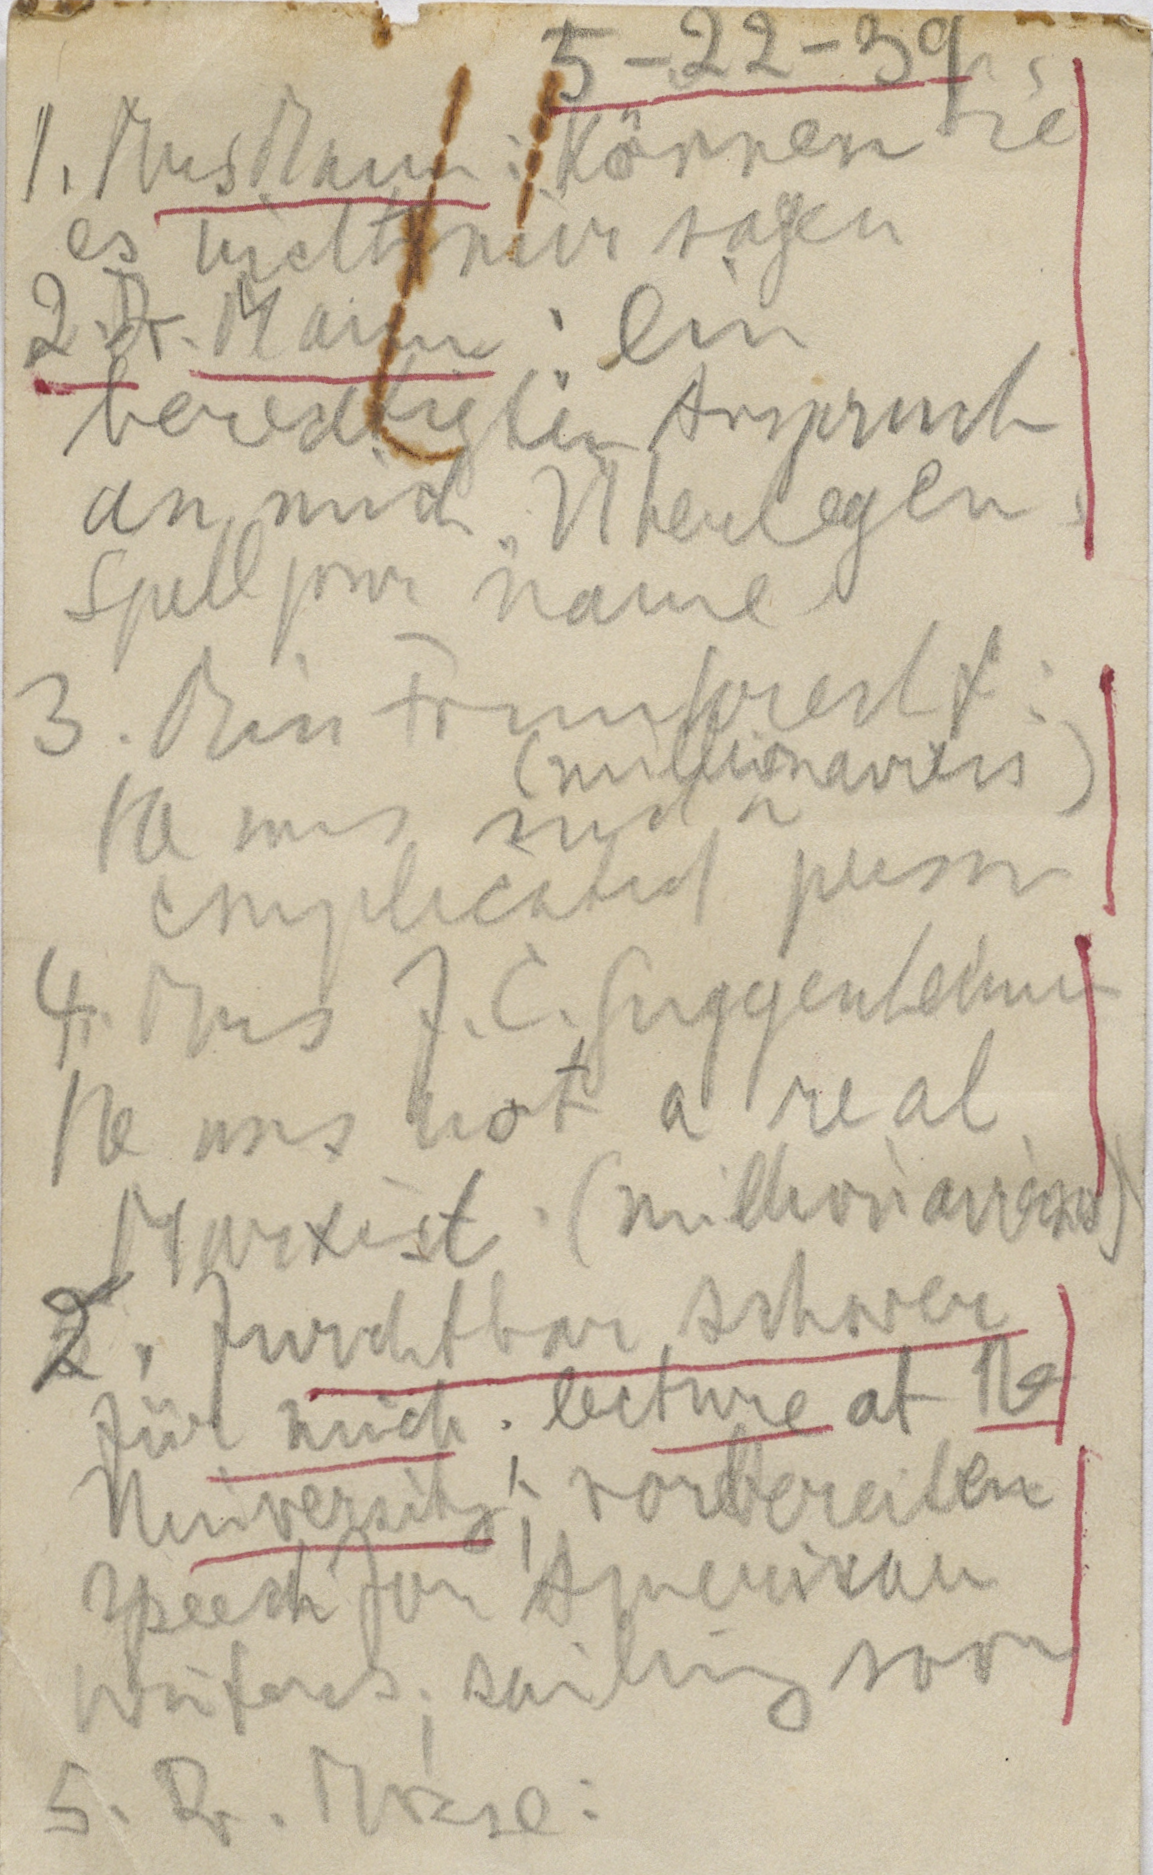 5-22-39
1. Mrs Mann: Können Sie
es nicht mir sagen
2. Dr. Mann: Ein
berechtigter Anspruch
an mich. Überlegen.
Spell your name
3. Miss
(millionairess)
He was such a
complicated person
4. Mrs J. C. Guggenheimer
He was not a real
Marxist. (millionairess)
2. Furchtbar schwer
für mich. lecture at the
University; vorbereiten
speech for American
writers; sailing soon
5. Dr.